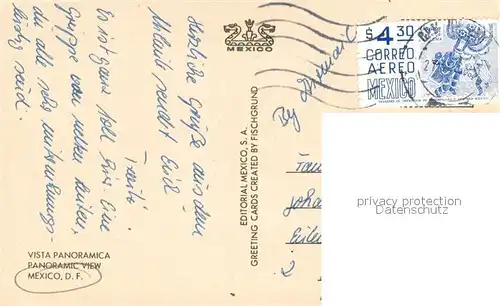 Herzliche Grüße aus dem
Urlaub sendet Euch
Es ist ganz toll hier. Eine
Gruppe von netten Leuten,
die alle sehr
lustig sind.
VISTA PANORAMICA
PANORAMIC VIEW
MEXICO, D. F.
MEXICO
EDITORIAL MEXICO, S. A.
GREETING CARDS CREATED BY FISCHGRUND
By Airmail
$4.30
CORREO
AEREO
MEXICO
Fam
Joha
privacy protection
Datenschutz